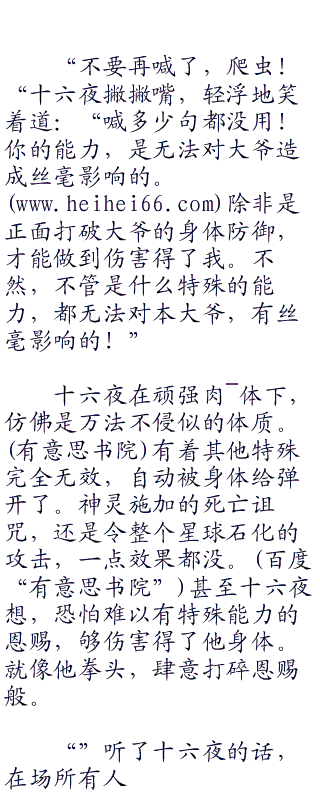 “不要再喊了，爬虫！
“十六夜撇撇嘴，轻浮地笑
着道：“喊多少句都没用！
你的能力，是无法对大爷造
成丝毫影响的。
(www.heihei66.com)除非是
正面打破大爷的身体防御，
才能做到伤害得了我。不
然，不管是什么特殊的能
力，都无法对本大爷，有丝
毫影响的！”
十六夜在顽强肉¯体下，
仿佛是万法不侵似的体质。
(有意思书院)有着其他特殊
完全无效，自动被身体给弹
开了。神灵施加的死亡诅
咒，还是令整个星球石化的
攻击，一点效果都没。(百度
“有意思书院”)甚至十六夜
想，恐怕难以有特殊能力的
恩赐，够伤害得了他身体。
就像他拳头，肆意打碎恩赐
般。
“”听了十六夜的话，
在场所有人